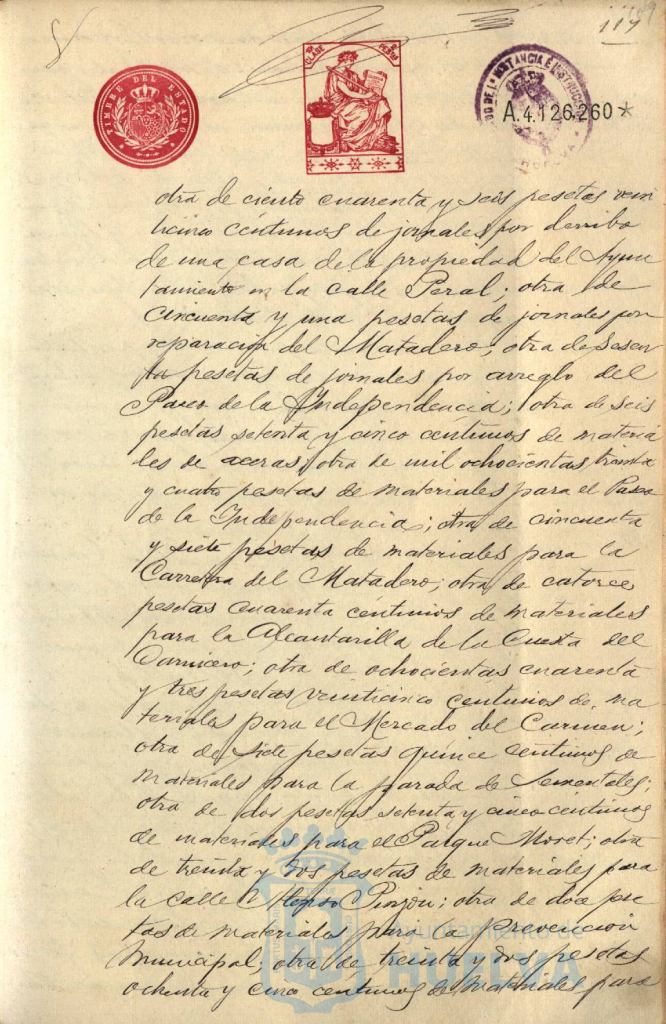 117
TIMBRE DEL ESTADO
CLASE
PESETA
A.4.126.260*
otra de ciento cuarenta y seis pesetas vein
ticinco céntimos de jornales por derribo
de una casa de la propiedad del Ayun
tamiento en la calle Peral; otra de
cincuenta y una pesetas de jornales por
reparación del Matadero; otra de sesen
ta pesetas de jornales por arreglo del
Paseo de la Independencia; otra de seis
pesetas setenta y cinco centimos de materia
les de aceras; otra de mil ochocientas treinta
y cuatro pesetas de materiales para el Paseo
de la Independencia; otra de cincuenta
y siete pesetas de materiales para la
Carretera del Matadero; otra de catorce
pesetas cuarenta centimos de materiales
para la Alcantarilla de la Cuesta del
Carnicero; otra de ochocientas cuarenta
y tres pesetas veinticinco centimos de ma
teriales para el Mercado del Carmen;
otra de siete pesetas quince centimos de
materiales para la parada de Sementales;
otra de dos pesetas setenta y cinco centimos
de materiales para el Parque Moret; otra
de treinta y dos pesetas de materiales para
la calle Alonso Pinzón; otra de doce pese
tas de materiales para la Prevención
Municipal; otra de treinta y dos pesetas
ochenta y cinco centimos de materiales para
Ayuntamiento de
HUELVA